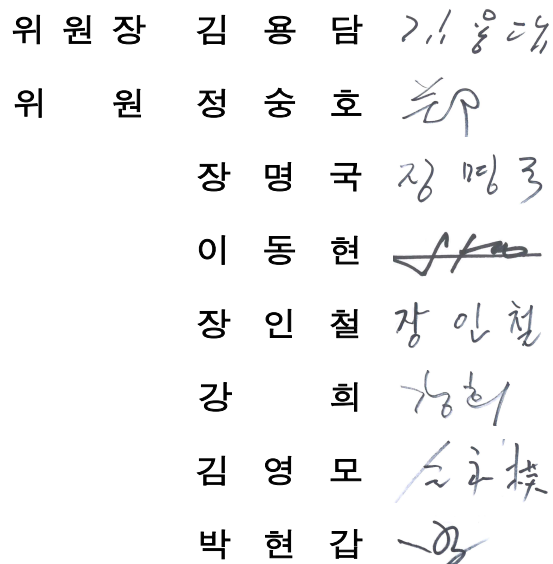 위 원 장 김 용 담 김용담
위 원 정 숭 호 鄭
장 명 국 장명국
이 동 현
장 인 철 장인철
강 희 강희
김 영 모
박 현 갑